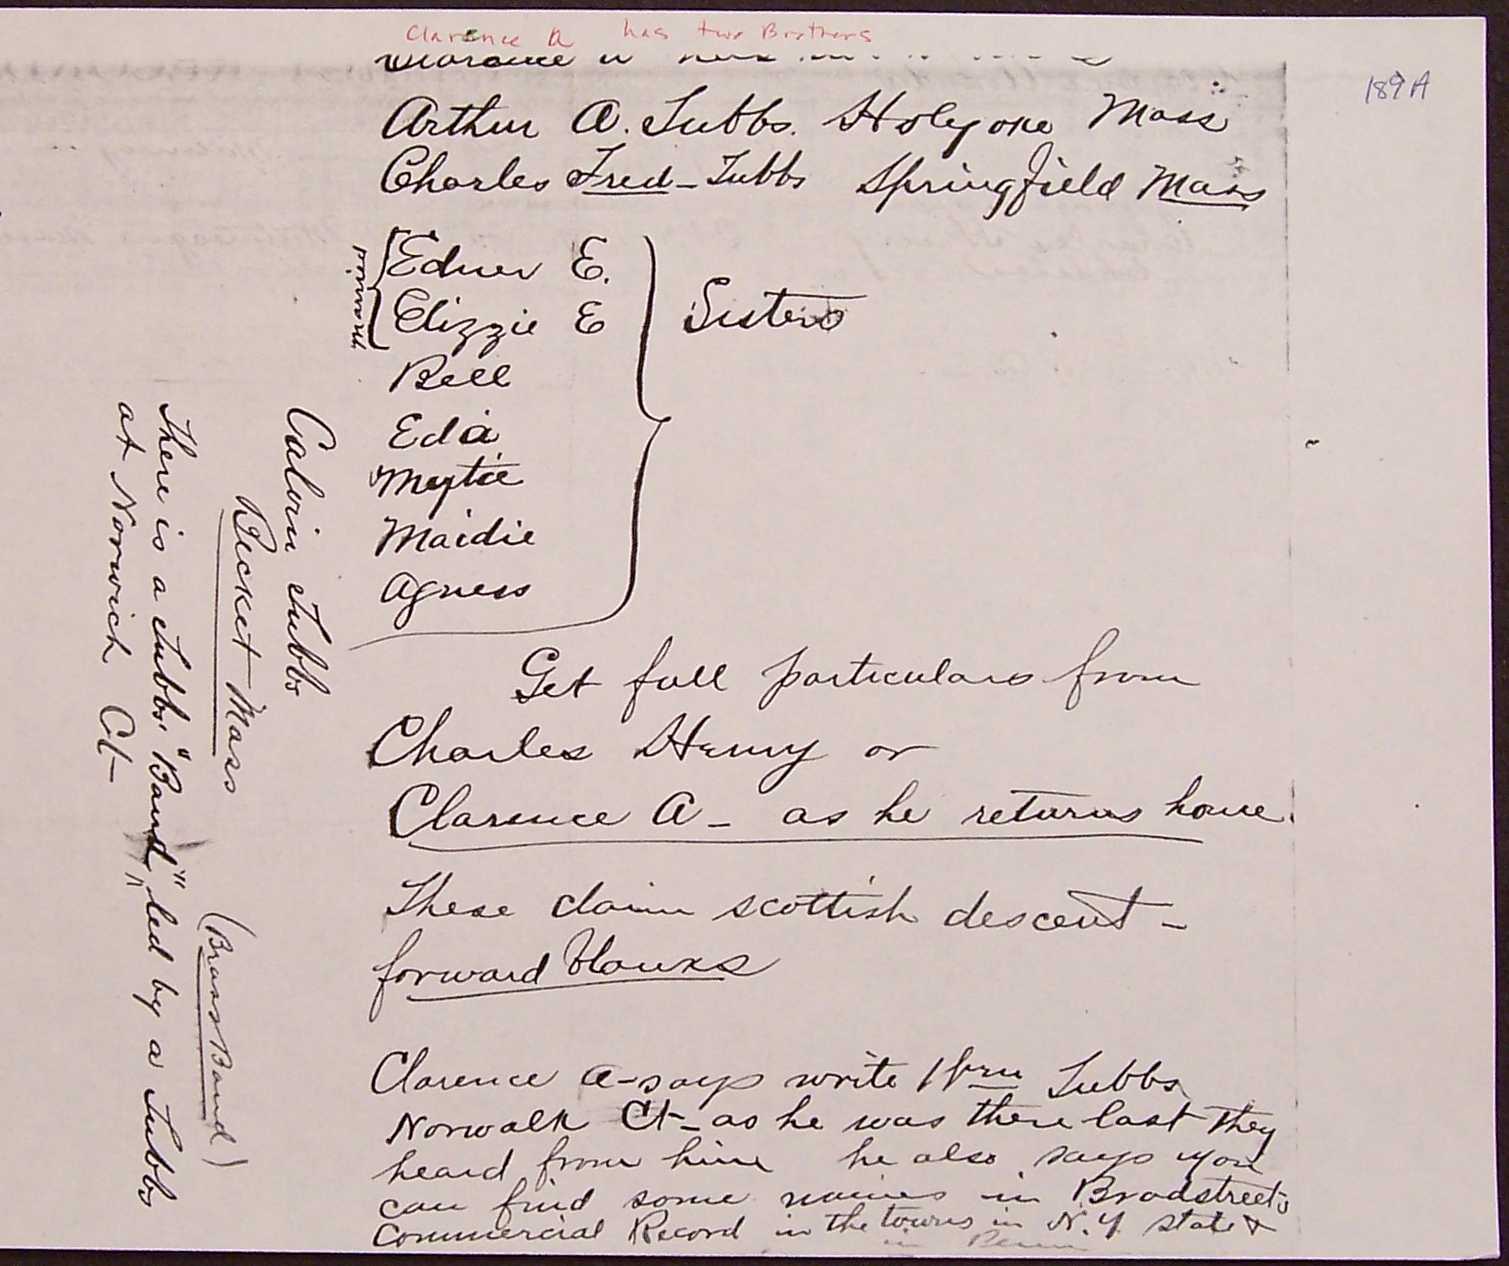 Clarence A has two Brothers
189A
Arthur A. Tubbs. Holyoke Mass
Charles Fred - Tubbs Springfield Mass
married
Edner E.
Elizzie E
Bell
Eda
Meytie
Maidie
Agness
Sisters
Get full particulars from
Charles Henry or
Clarence A - as he returns home.
These claim scottish descent -
forward blanks
Clarence A - says write Wm Tubbs
Norwalk Ct - as he was there last They
heard from him he also says you
can find some names in Bradstreets
Commercial Record in the towns in N.Y state &
in Penn
Calvin Tubbs
Becket Mass
(Brass Band)
There is a Tubbs. "Band" led by a Tubbs
at Norwich Ct -